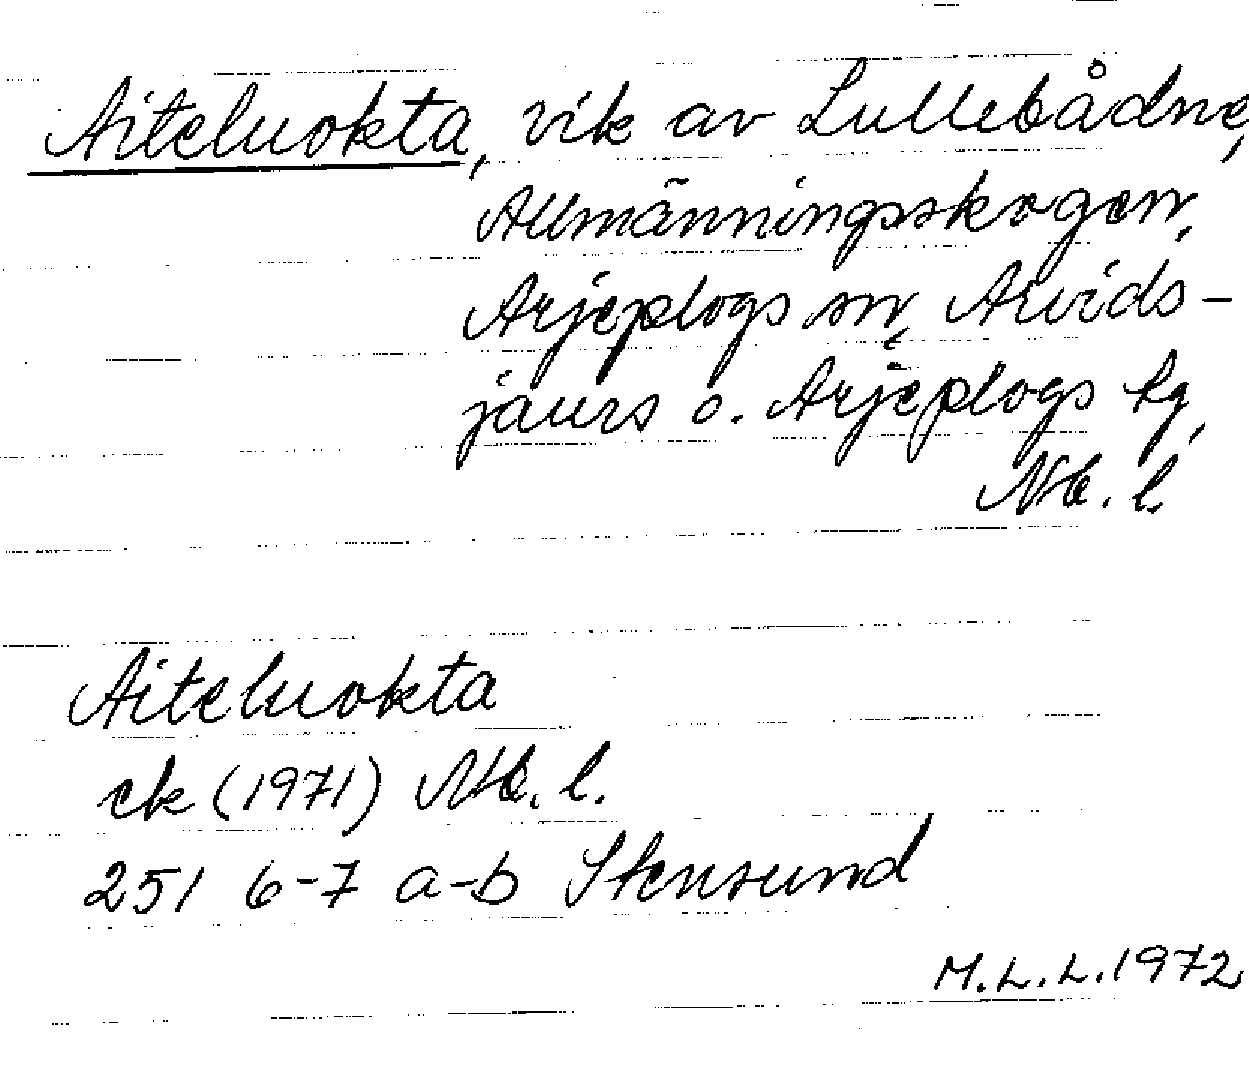 Aiteluokta, vik av Lullebådne,
Allmänningsskogen,
Arjeplogs sn, Arvids-
jaurs o. Arjeplogs tg,
Nb. l.
Aiteluokta
ek (1971) Nb. l.
251 6-7 a-b Stensund
M.L.L. 1972